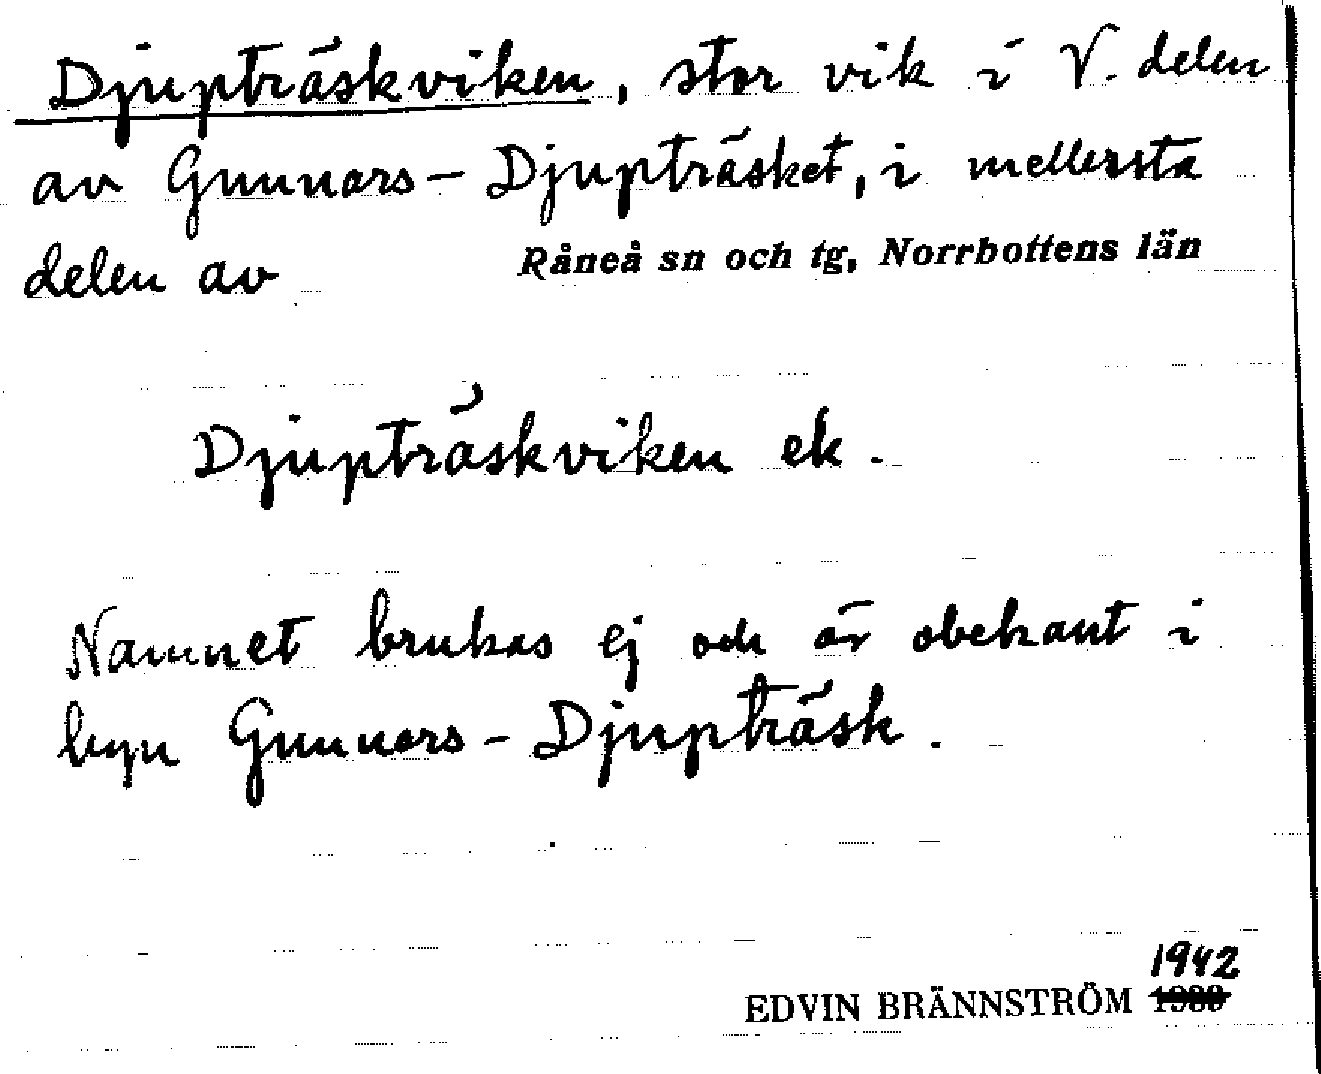 Djupträskviken, stor vik i V. delen
av Gunnars-Djupträsket, i mellersta
delen av Råneå sn och tg, Norrbottens län
Djupträskviken ek.
Namnet brukas ej och är obekant i
byn Gunnars-Djupträsk.
1942
EDVIN BRÄNNSTRÖM